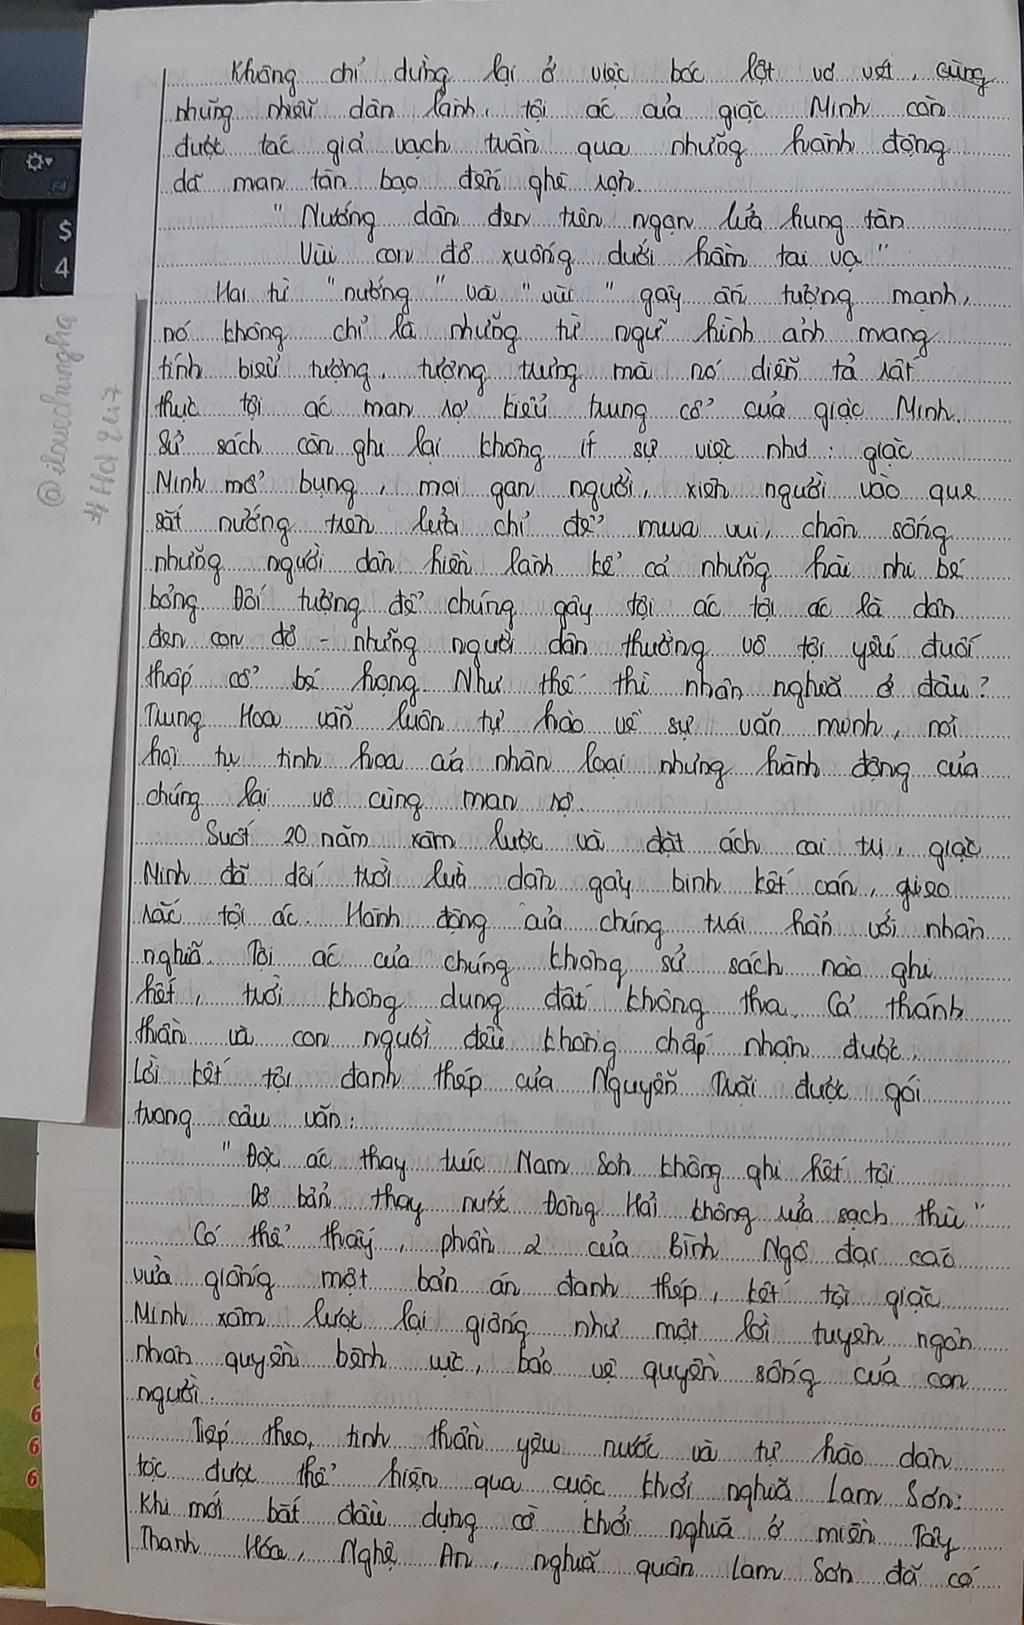 Không chỉ dừng lại ở việc bóc lột vơ vét, cùng
những nhiễu dân lành, tội ác của giặc Minh còn
được tác giả vạch trần qua những hành động
dã man tàn bạo đến ghê rợn.
" Nướng dân đen trên ngọn lửa hung tàn
Vùi con đỏ xuống dưới hầm tai vạ "
Hai từ "nướng" và "vùi" gây ấn tượng mạnh,
nó không chỉ là những từ ngữ hình ảnh mang
tính biểu tượng, tượng trưng mà nó diễn tả rất
thực tội ác man rợ kiểu trung cổ của giặc Minh.
Sử sách còn ghi lại không ít sự việc như: giặc
Minh mổ bụng, moi gan người, xiên người vào que
sắt nướng trên lửa chỉ để mua vui, chôn sống
những người dân hiền lành kể cả những hài nhi bé
bỏng. Đối tượng để chúng gây tội ác tội ác là dân
đen con đỏ - những người dân thường vô tội yếu đuối
thấp cổ bé họng. Như thế thì nhân nghĩa ở đâu?
Trung Hoa vẫn luôn tự hào về sự văn minh, nơi
hội tụ tinh hoa của nhân loại nhưng hành động của
chúng lại vô cùng man rợ.
Suốt 20 năm xâm lược và đặt ách cai trị, giặc
Minh đã dối trời lừa dân gây binh kết oán, gieo
rắc tội ác. Hành động của chúng trái hẳn với nhân
nghĩa. Tội ác của chúng không sử sách nào ghi
hết, trời không dung đất không tha. Cả thánh
thần và con người đều không chấp nhận được.
Lời kết tội danh thép của Nguyễn Trãi được gói
trong câu văn:
" Độc ác thay trúc Nam Sơn không ghi hết tội
Dơ bẩn thay nước Đông Hải không rửa sạch thù "
Có thể thấy, phần 2 của Bình Ngô đại cáo
vừa giống một bản án danh thép, kết tội giặc
Minh xâm lược lại giống như một lời tuyên ngôn
nhân quyền bênh vực, bảo vệ quyền sống của con
người.
Tiếp theo, tinh thần yêu nước và tự hào dân
tộc được thể hiện qua cuộc khởi nghĩa Lam Sơn:
Khi mới bắt đầu dựng cờ khởi nghĩa ở miền Tây
Thanh Hóa, Nghệ An, nghĩa quân Lam Sơn đã có
@ilovechungha
#Ha 2k7
$
4
F4
6
6
6